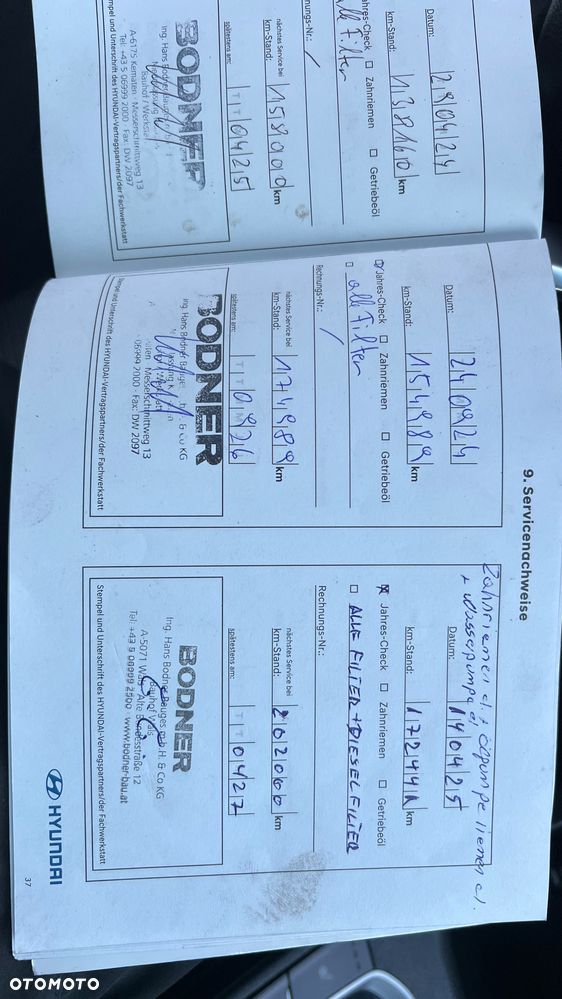 Datum: 290424
km-Stand: 138160 km
Jahres-Check □ Zahnriemen □ Getriebeöl
alle Filter
nächstes Service bei
km-Stand: 158000 km
spätestens am: TT0425
BODNER
A-6175 Kematen · Messerschmittweg 13
Tel: +43 5 06999 2000 · Fax: DW 2097
Stempel und Unterschrift des HYUNDAI-Vertragspartners/der Fachwerkstatt
Datum: 240924
km-Stand: 154989 km
Jahres-Check □ Zahnriemen □ Getriebeöl
□ alle Filter
Rechnungs-Nr.: /
nächstes Service bei
km-Stand: 174989 km
spätestens am: TT0926
BODNER
Ing. Hans Bodner Bauges. & Co KG
Messerschmittweg 13
06999 2000 · Fax: DW 2097
Stempel und Unterschrift des HYUNDAI-Vertragspartners/der Fachwerkstatt
9. Servicenachweise
Zahnriemen el. + Ölpumpe riemen el.
+ Wasserpumpe el
Datum: 140425
km-Stand: 172441 km
☒ Jahres-Check □ Zahnriemen □ Getriebeöl
□ ALLE FILTER + DIESELFILTER
Rechnungs-Nr.:
nächstes Service bei
km-Stand: 202000 km
spätestens am: TT0427
BODNER
Ing. Hans Bodner Bauges.m.b.H. & Co KG
Bauhof Wals
A-5071 Wals · Alte Bundesstraße 12
Tel: +43 5 06999 2500 · www.bodner-bau.at
Stempel und Unterschrift des HYUNDAI-Vertragspartners/der Fachwerkstatt
HYUNDAI
37
OTOMOTO